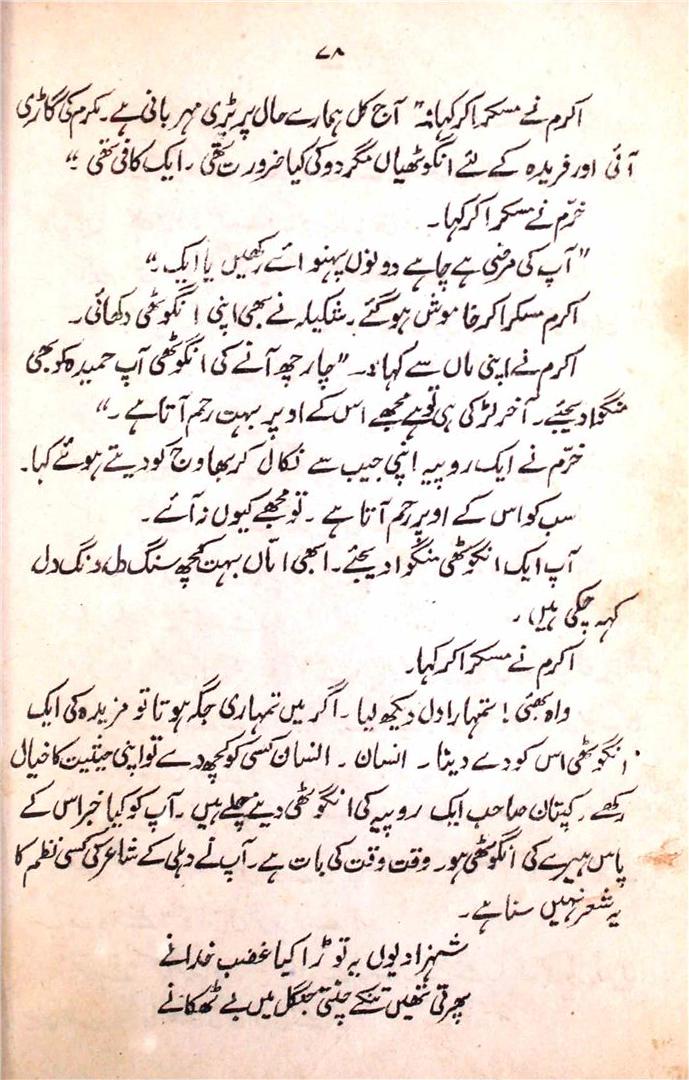 ۷۸
اکرم نے مسکرا کر کہا:۔ " آج کل ہمارے حال پر بڑی مہربانی ہے۔ مکرم کی گاڑی
آئی اور فریدہ کے لئے انگوٹھیاں مگر دو کی کیا ضرورت تھی ۔ ایک کافی تھی ۔"
خرّم نے مسکرا کر کہا۔
"آپ کی مرضی ہے چاہے دونوں پہنوائے رکھیں یا ایک ۔"
اکرم مسکرا کر خاموش ہو گئے ۔ شکیلہ نے بھی اپنی انگوٹھی دکھائی۔
اکرم نے اپنی ماں سے کہا:۔ "چار چھ آنے کی انگوٹھی آپ حمیدہ کو بھی
منگوا دیجئے۔ آخر لڑکی ہی تو ہے مجھے اس کے اوپر بہت رحم آتا ہے ۔"
خرّم نے ایک روپیہ اپنی جیب سے نکال کر بھاوج کو دیتے ہوئے کہا۔
سب کو اس کے اوپر رحم آتا ہے ۔ تو مجھے کیوں نہ آئے ۔
آپ ایک انگوٹھی منگوا دیجئے۔ ابھی اماّں بہت کچھ سنگ دل، ننگ دل
کہہ چکی ہیں ۔
اکرم نے مسکرا کر کہا۔
واہ بھئی ! تمہارا دل دیکھ لیا ۔ اگر میں تمہاری جگہ ہوتا تو فریدہ کی ایک
انگوٹھی اس کو دے دیتا ۔ انسان ۔ انسان کسی کو کچھ دے تو اپنی حیثیت کا خیال
رکھے ۔ کپتان صاحب ایک روپیہ کی انگوٹھی دینے چلے ہیں ۔ آپ کو کیا خبر اس کے
پاس ہیرے کی انگوٹھی ہو۔ وقت وقت کی بات ہے۔ آپ نے دہلی کے شاعر کی کسی نظم کا
یہ شعر نہیں سنا ہے ۔
شہزادیوں پہ توڑا کیا غضب خدا نے
پھرتی تھیں تنکے چنتی جنگل میں بے ٹھکانے